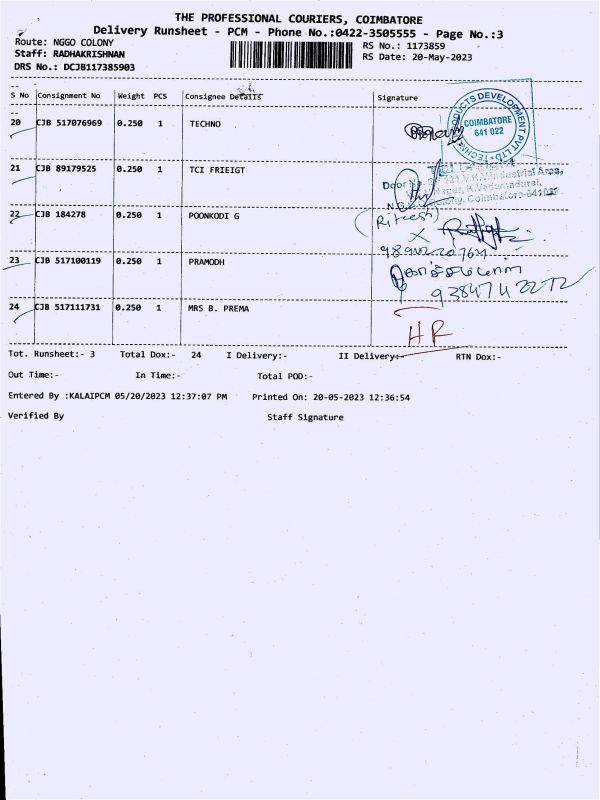 THE PROFESSIONAL COURIERS, COIMBATORE
Delivery Runsheet - PCM - Phone No.:0422-3505555 - Page No.:3
Route: NGGO COLONY
RS No.: 1173859
Staff: RADHAKRISHNAN
RS Date: 20-May-2023
DRS No.: DCJB117385903
S No Consignment No Weight PCS Consignee Details Signature
20 CJB 517076969 0.250 1 TECHNO
COIMBATORE
641 022
21 CJB 89179525 0.250 1 TCI FRIEIGT
Industrial Area,
Coimbatore-641022
22 CJB 184278 0.250 1 POONKODI G
(Riteesh)
X
23 CJB 517100119 0.250 1 PRAMODH
24 CJB 517111731 0.250 1 MRS B. PREMA
HR
Tot. Runsheet:- 3 Total Dox:- 24 I Delivery:- II Delivery:- RTN Dox:-
Out Time:- In Time:- Total POD:-
Entered By :KALAIPCM 05/20/2023 12:37:07 PM Printed On: 20-05-2023 12:36:54
Verified By Staff Signature